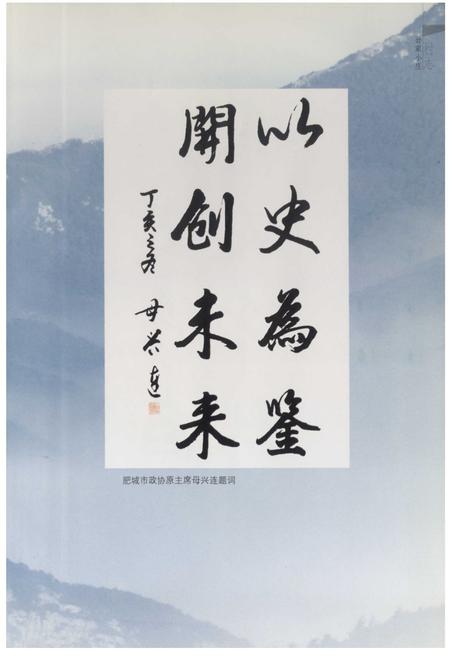 以史為鑒
開创未来
丁亥之冬
毋兴连
肥城市政协原主席毋兴连题词